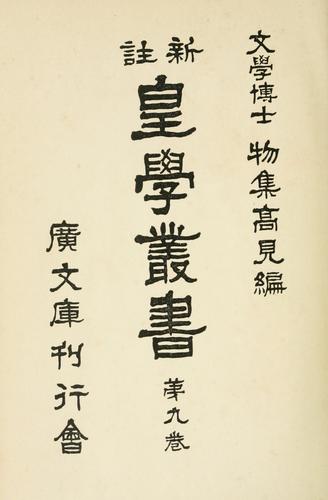 文學博士 物集高見編
新註
皇學叢書 第九卷
廣文庫刊行會